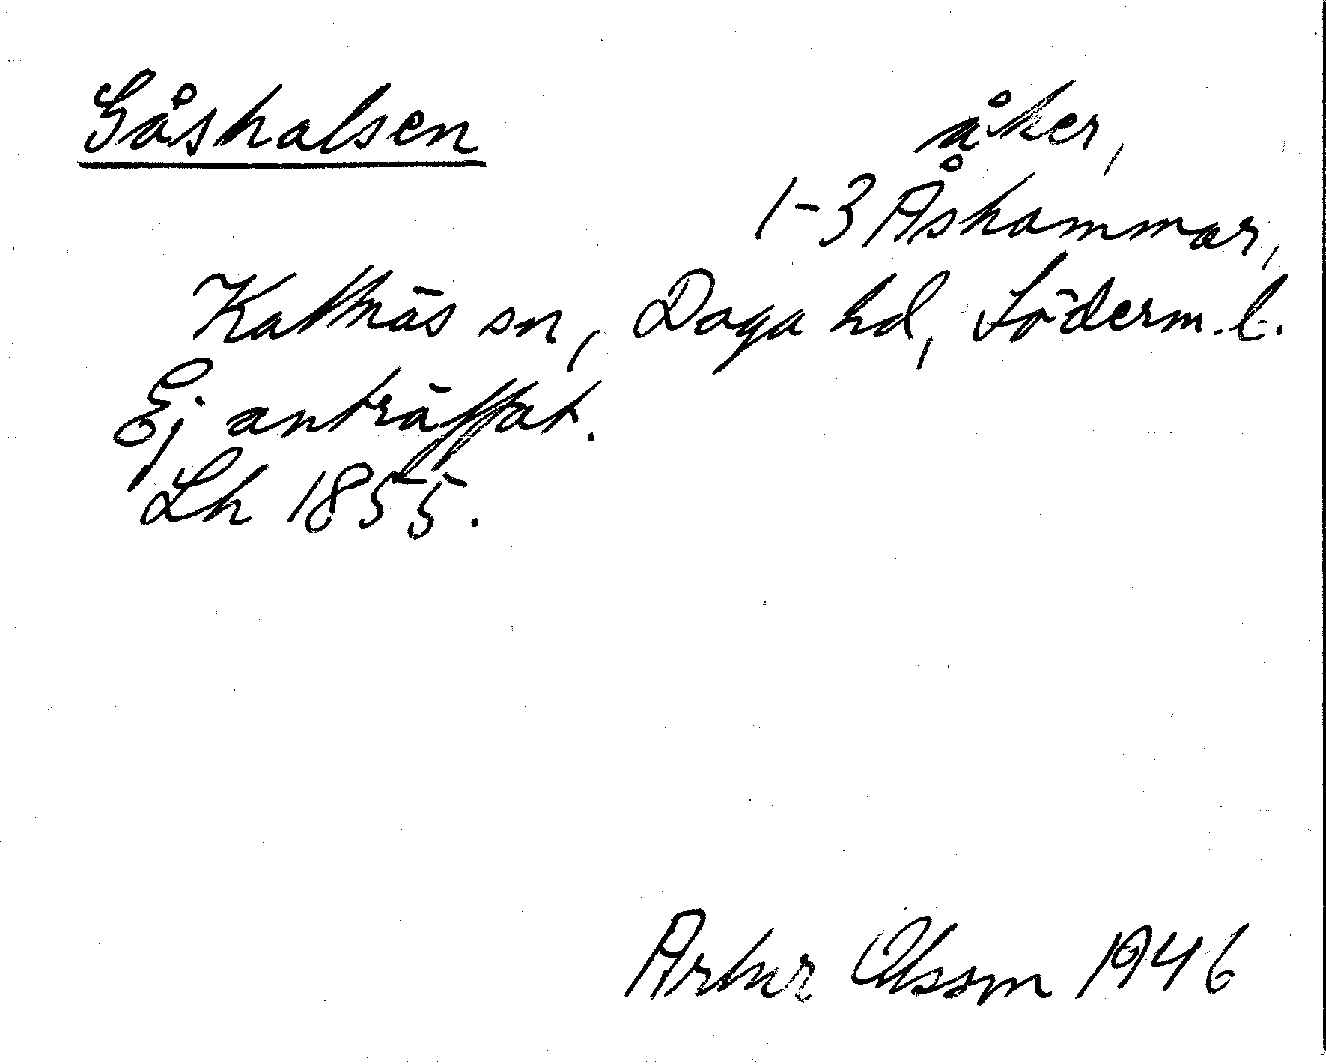 Gåshalsen
åker,
1-3 Åshammar,
Kattnäs sn, Daga hd, Söderm. l.
Ej anträffat.
Lh 1855.
Artur Olsson 1946